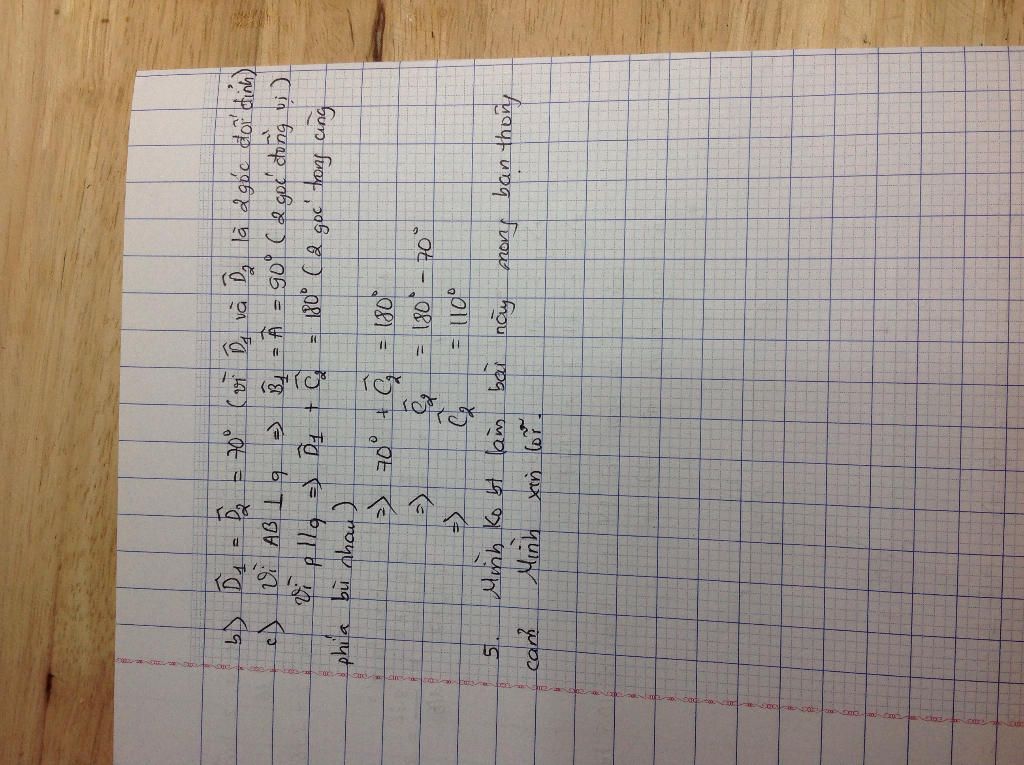 b) D̂1 = D̂2 = 70° (vì D̂1 và D̂2 là 2 góc đối đỉnh)
c) Vì AB ⊥ q => B̂1 = Â = 90° (2 góc đồng vị)
Vì p // q => D̂1 + Ĉ2 = 180° (2 góc trong cùng
phía bù nhau)
=> 70° + Ĉ2 = 180°
=> Ĉ2 = 180° - 70°
=> Ĉ2 = 110°
5. Mình ko bt làm bài này mong bạn thông
cảm Mình xin lỗi.